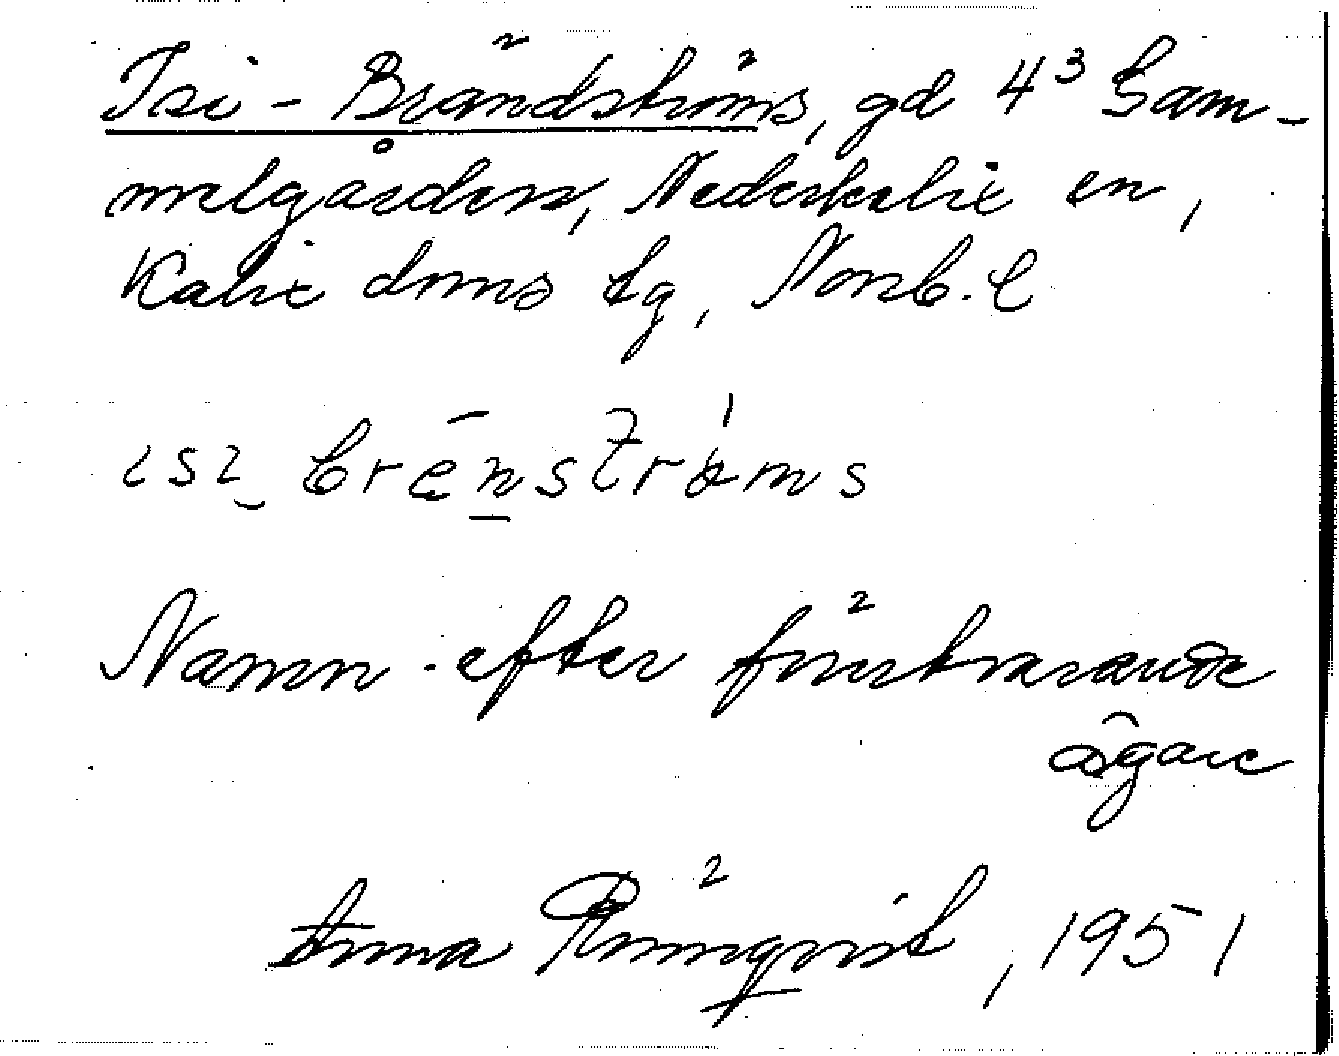 Isi-Brändströms, gd 4³ Gam-
melgården, Nederkalix sn,
Kalix dmns tg, Norrb. l
isi bränströms
Namn efter förutvarande
ägare
Anna Rönnqvist, 1951